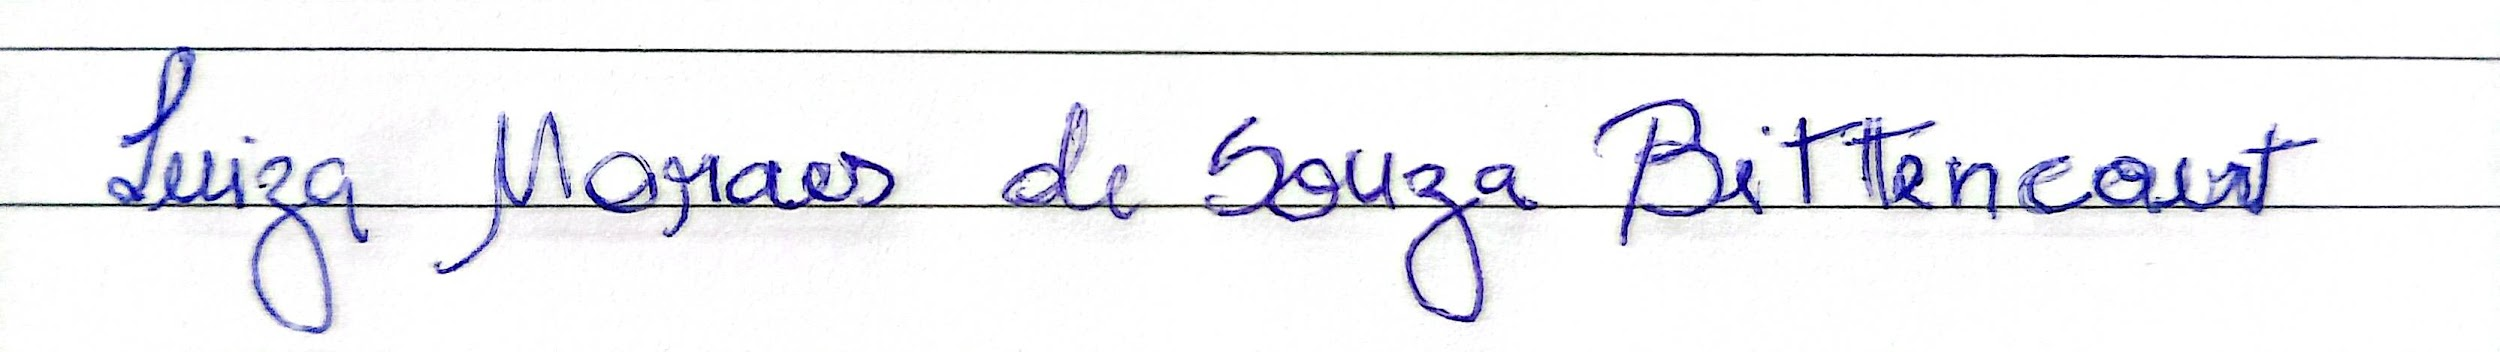 Luiza Moraes de Souza Bittencourt